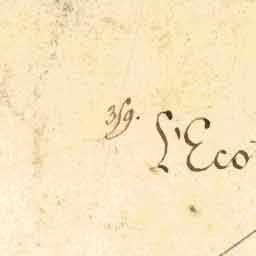 359.
L'Eco